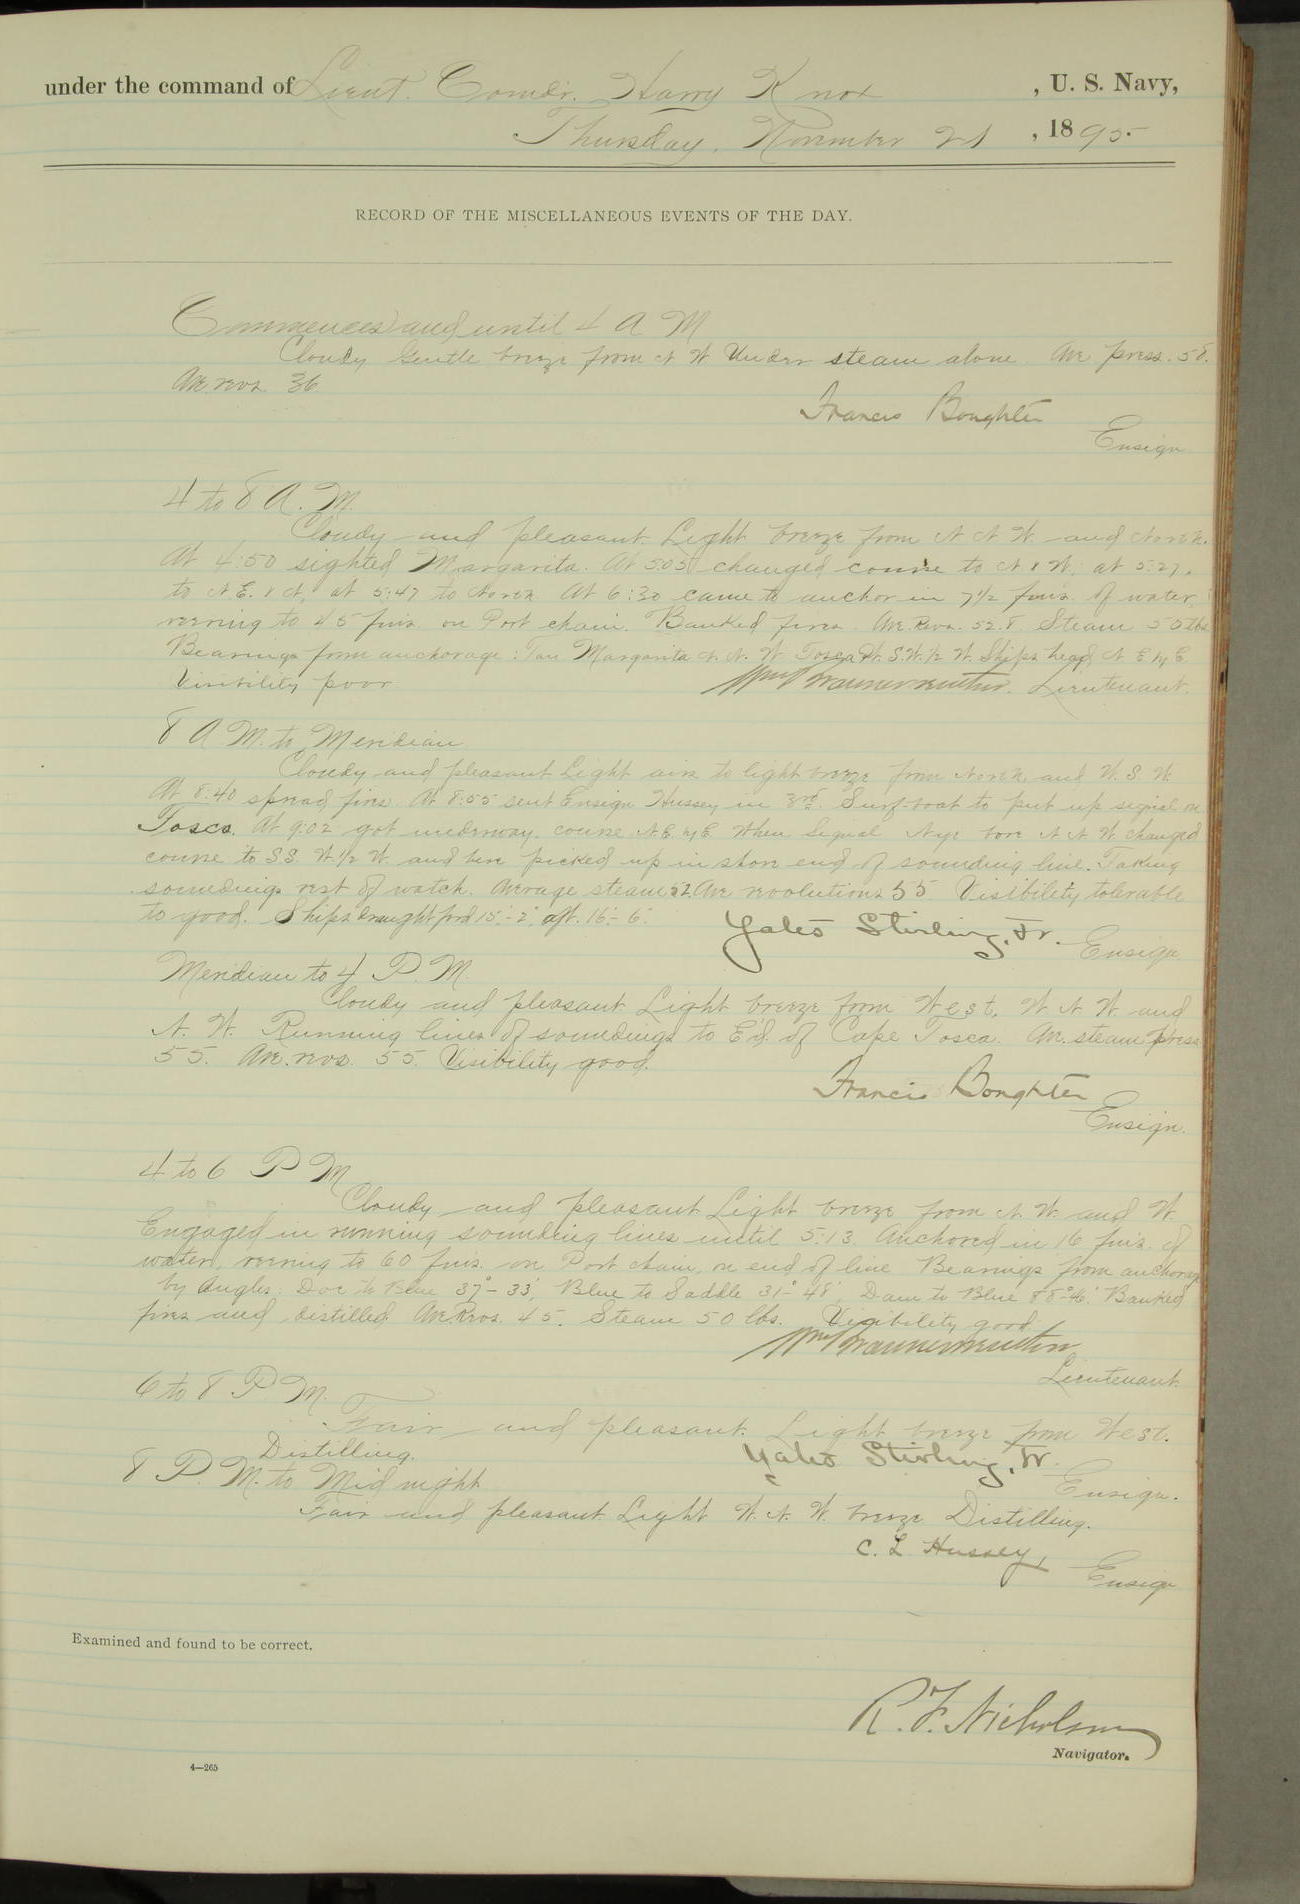 under the command of Lieut. Comdr. Harry Knox , U. S. Navy,
Thursday, November 21 , 1895.
RECORD OF THE MISCELLANEOUS EVENTS OF THE DAY.
Commences and until 4 A M
Cloudy Gentle breeze from N W Under steam alone Ave press. 58.
Ave revs. 36
Francis Boughter
Ensign
4 to 8 A. M.
Cloudy and pleasant Light breeze from N N W and North.
At 4:50 sighted Margarita. At 5:05 changed course to N & W; at 5:27,
to N E. & N, at 5:47 to North At 6:30 came to anchor in 7 1/2 fms. of water,
veering to 45 fms. on Port chain. Banked fires. Ave. Revs. 52.8 Steam 50 lbs
Bearings from anchorage: Tan Margarita N. N. W Tosca W. S. W. 1/2 W. Ships head N E by E
Visibility poor
Lieutenant.
8 A M. to Meridian
Cloudy and pleasant Light airs to light breeze from North and W. S W.
At 8:40 spread fires. At 8:55 sent Ensign Hussey in 3rd. Surf-boat to put up signal on
Tosco. At 9:02 got underway. course N E by E When Signal bore N N W. changed
course to S S. W 1/2 W and here picked up in shore end of sounding line. Taking
soundings rest of watch. Average steam 52 Ave revolutions 55 Visibility tolerable
to good. Ship's draught frd 15'-2", aft. 16'-6".
Yates Stirling, Jr. Ensign
Meridian to 4 P. M.
Cloudy and pleasant Light breeze from West, W N W and
N. W. Running lines of soundings to E'd. of Cape Tosca. Ave. steam press
55. Ave. revs. 55. Visibility good.
Francis Boughter
Ensign.
4 to 6 P M
Cloudy and pleasant Light breeze from N. W. and W.
Engaged in running sounding lines until 5:13. Anchored in 16 fms. of
water, veering to 60 fms. on Port chain, on end of line Bearings from anchorage
by Angles: Doc to Blue 37°-33', Blue to Saddle 31°-48', Dam to Blue 88°-46'. Banked
fires and distilled Ave. Revs. 45. Steam 50 lbs. Visibility good.
Lieutenant.
6 to 8 P M.
Fair and pleasant. Light breeze from West.
Distilling.
Yates Stirling, Jr.
Ensign.
8 P. M. to Midnight
Fair and pleasant Light W. N. W. breeze Distilling.
C. L. Hussey,
Ensign
Examined and found to be correct.
R. F. Nicholson
Navigator.
4—265